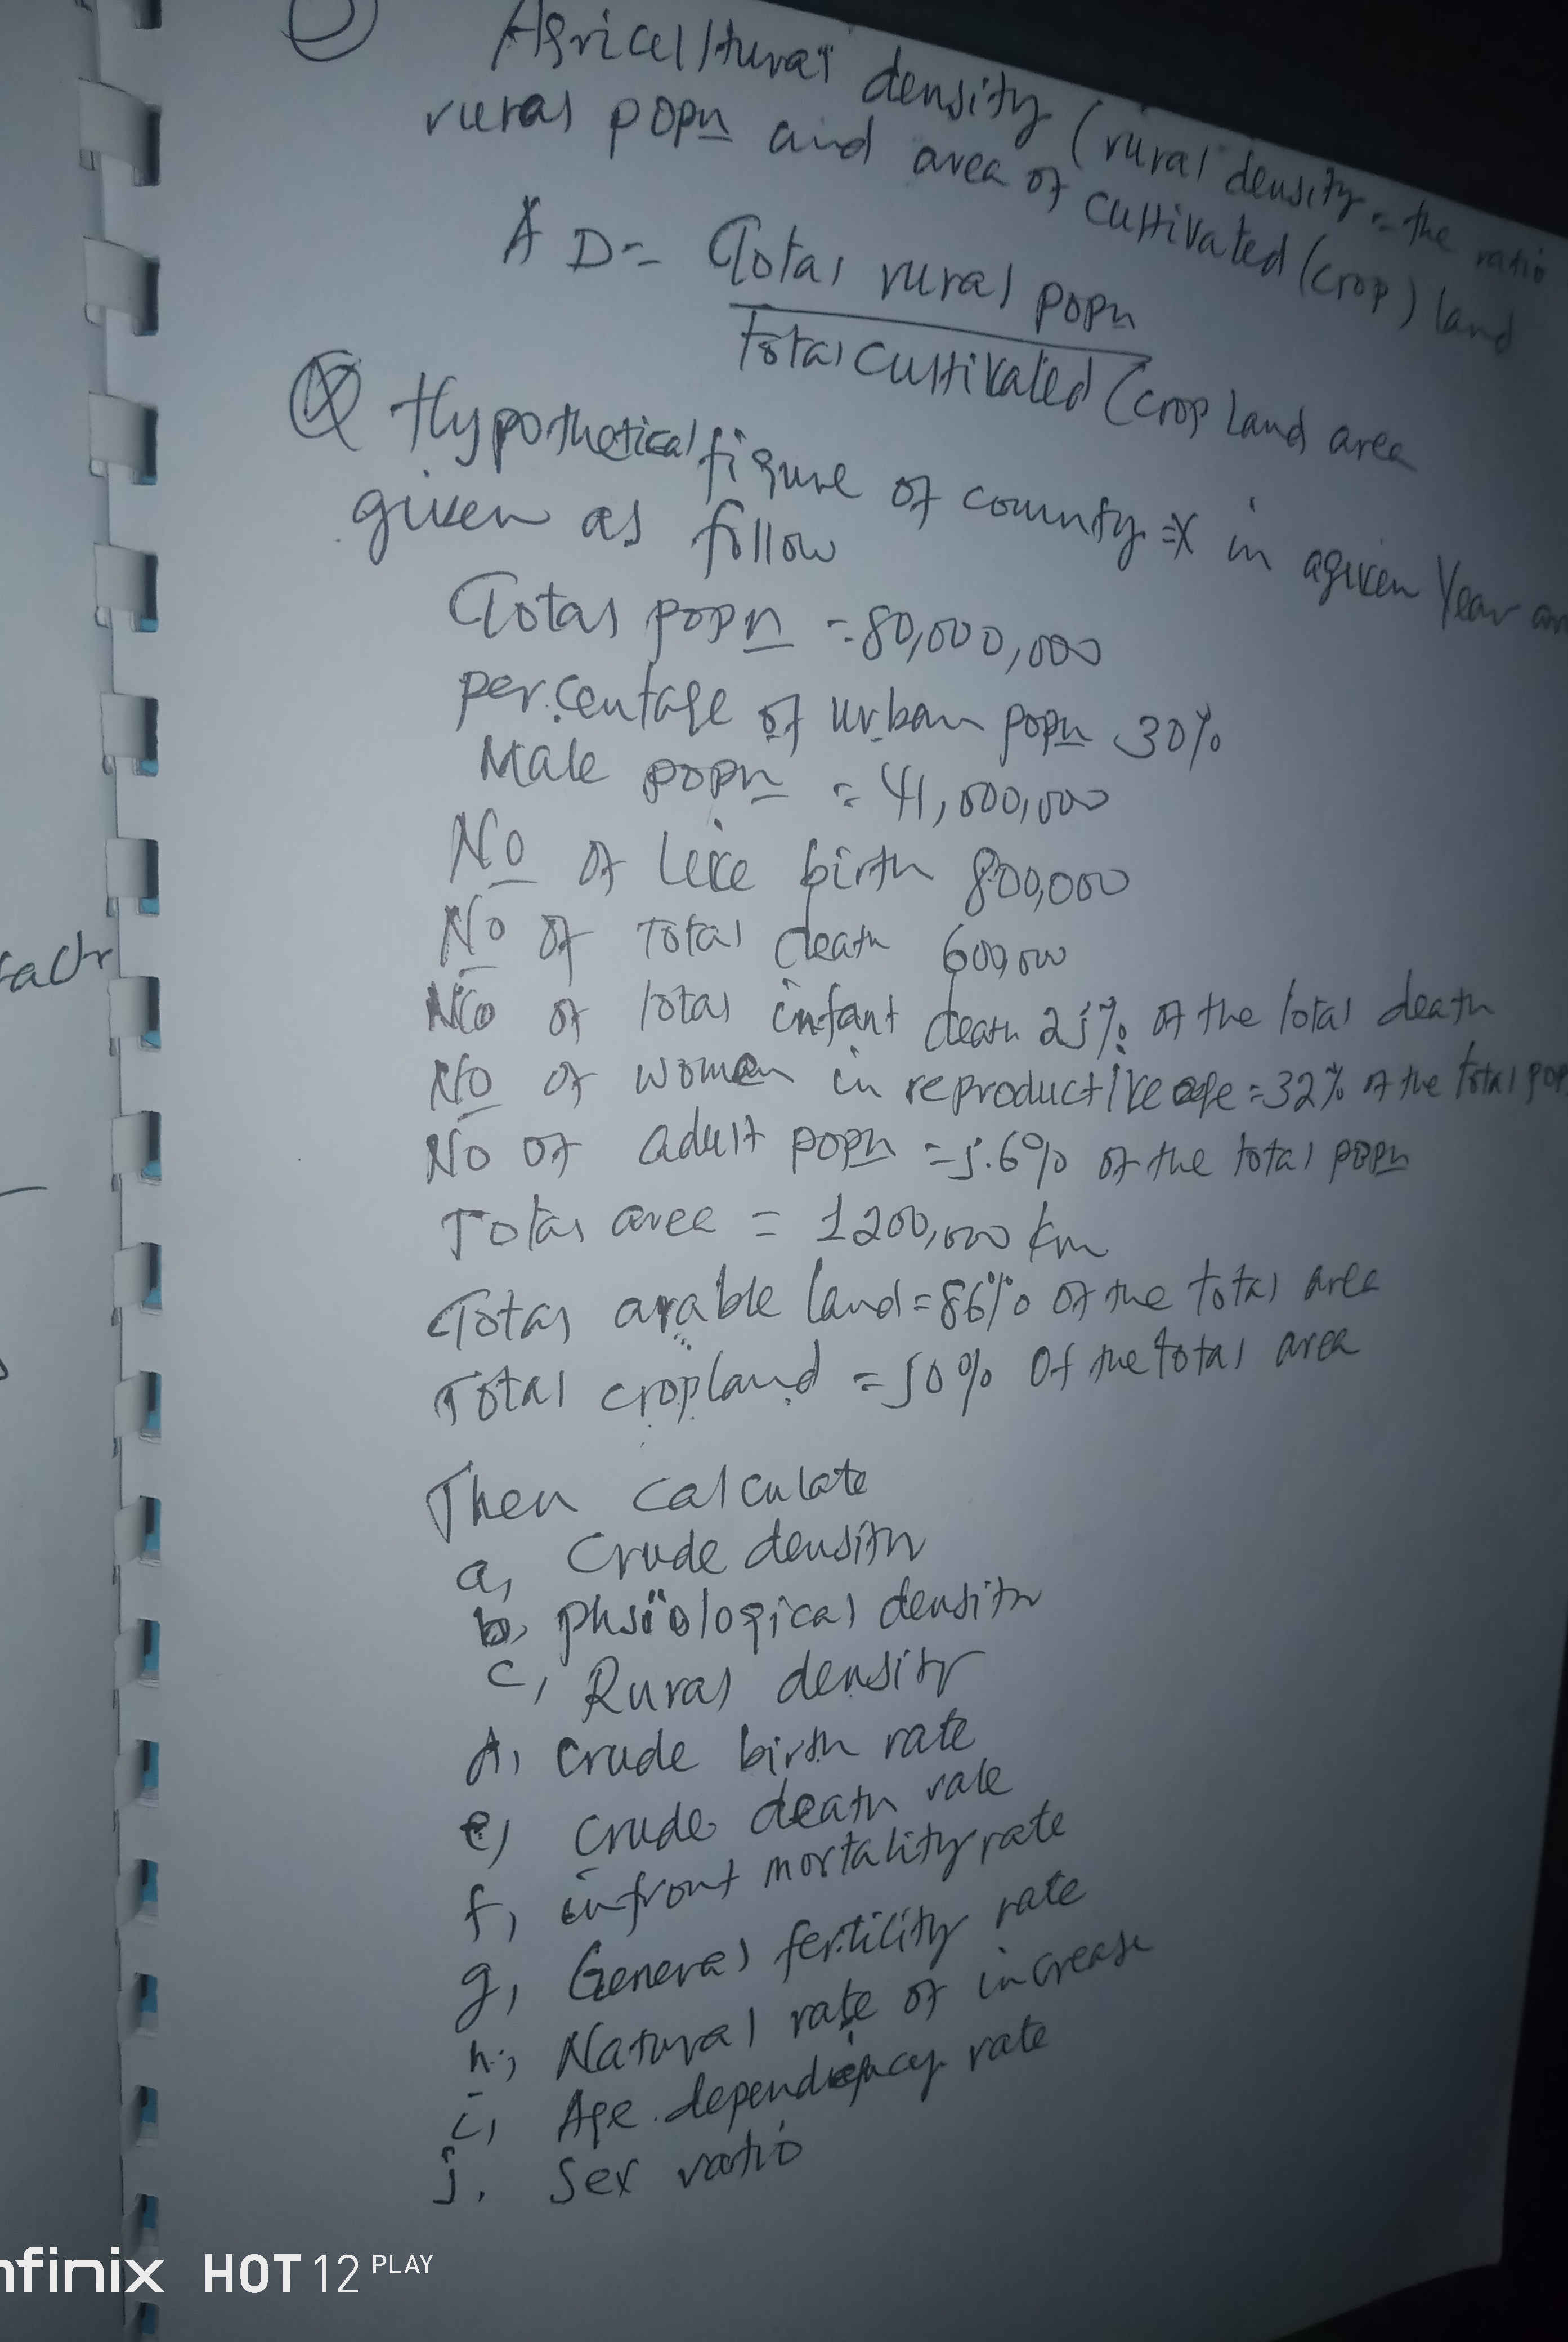 Agricultural density (rural density = the ratio
rural popn and area of cultivated (crop) land
AD = Total rural popn
Total cultivated (crop land area
Hypothetical figure of country = X in agiven Year an
given as follow
Total popn = 80,000,000
percentage of urban popn 30%
Male popn = 41,000,000
No of live birth 800,000
No of total death 600,000
No of total infant death 25% of the total death
No of women in reproductive age = 32% of the total pop
No of adult popn = 5.6% of the total popn
Total area = 1200,000 km
Total arable land = 86% of the total area
Total cropland = 50% of the total area
Then calculate
a, Crude density
b, phsiological density
c, Rural density
d, crude birth rate
e) crude death rate
f, infront mortality rate
g, General fertility rate
h, Natural rate of increase
i, Age dependency rate
j. Sex ratio
nfinix HOT 12 PLAY